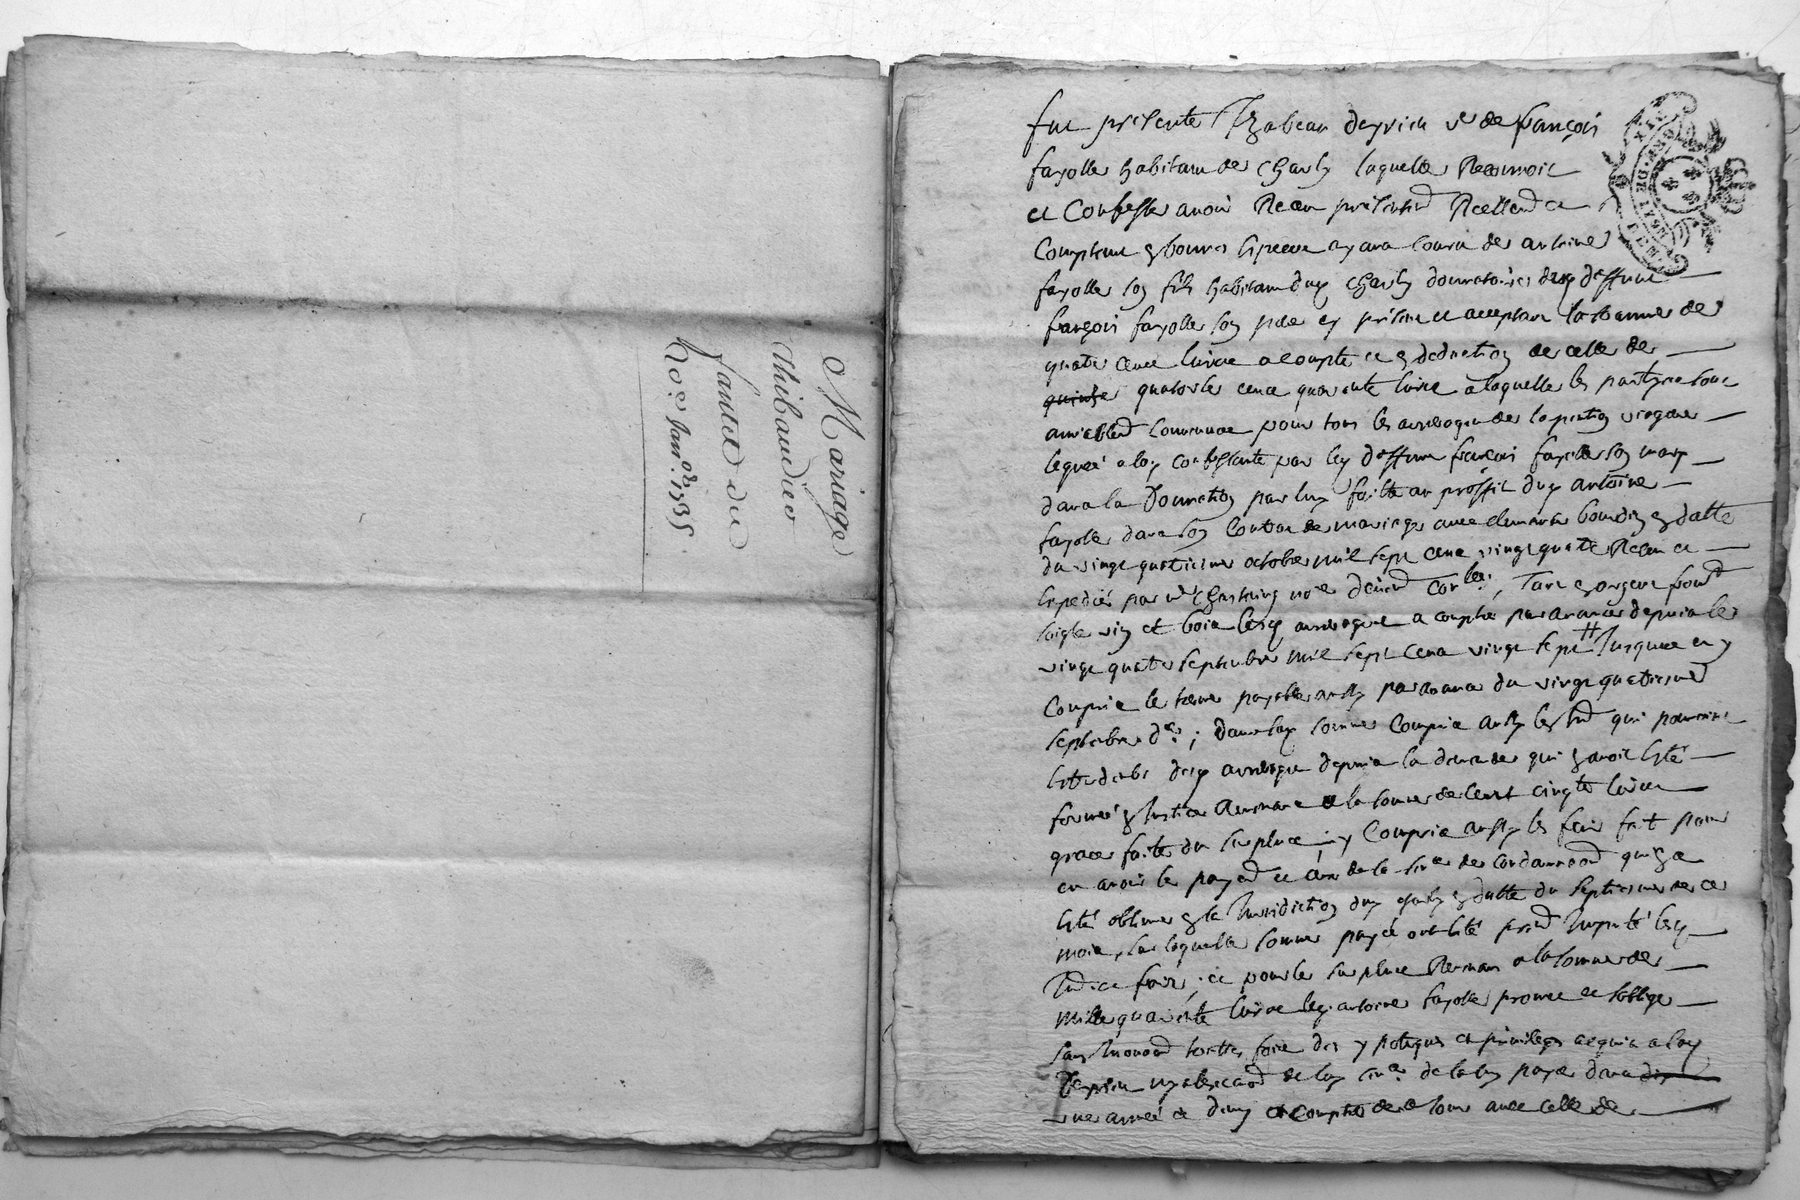 Mariage
thibaudier
fautet du
20.e Janv. 1735
fut presente Izabeau deyrieu ve de françois
fayolle habitant de Charly laquelle Reconnoit
et Confesse avoir Receu presentemd Reellemd et
Comptant en bonnes Especes ayant cours de antoine
fayolle son fils habitant dud Charly donnataire dud deffunt
françois fayolle son pere cy present et acceptant la somme de
quatre cent livres a compte et en deduction de celle de
quatorze cent quarante livres a laquelle les parties se sont
amiablemd convenue pour tous les arrerages de la pention viagere
leguée a lad constituante par led deffunt françois fayolle son mary
dans la Donnation par luy faitte au proffit dud antoine
fayolle dans son Contrat de mariage avec Clemence bourdin en datte
du vingt quatrieme octobre mil sept cent vingt quatre Receu et
Expedié par me nore, Tant en argent froment
seigle vin et bois lesd arrerages a compter par avance depuis le
vingt quatre septembre mil sept cent vingt sept Jusques et y
Compris le terme payable aussy par avance du vingt quatrieme
septembre der; dans lad somme Compris aussy les qui pouvoient
Estre deubs desd arrerages depuis la demande qui en avoit Esté
formée en Justice Revenant a la somme de Cent cinqte livres
grace faite du surplus; y Compris aussy les frais fait pour
en avoir le payemd et ceux de la sce de condamnaond quelle a
Esté obtenue en la Jurisdiction dud Charly en datte du septieme de ce
mois, sur laquelle somme payée ont Esté Imputé lesd
et frais; et pour le surplus Revenant a la somme de
mille quarante livres led antoine fayolle promet et s'oblige
sans Innovaond toutes fois des ypoteques et privileges acquis a lad
Deyrieu de lad sce de la luy payer dans
une année et demy a compter de ce jour avec celle de